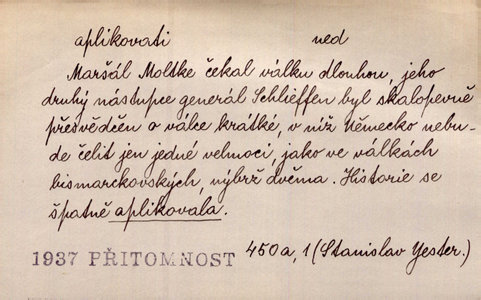 aplikovati ned
Maršál Moltke čekal válku dlouhou, jeho
druhý nástupce generál Schlieffen byl skalopevně
přesvědčen o válce krátké, v níž Německo nebu-
de čelit jen jedné velmoci, jako ve válkách
bismarckovských, nýbrž dvěma. Historie se
špatně aplikovala.
1937 PŘÍTOMNOST 450a, 1 (Stanislav Yester.)